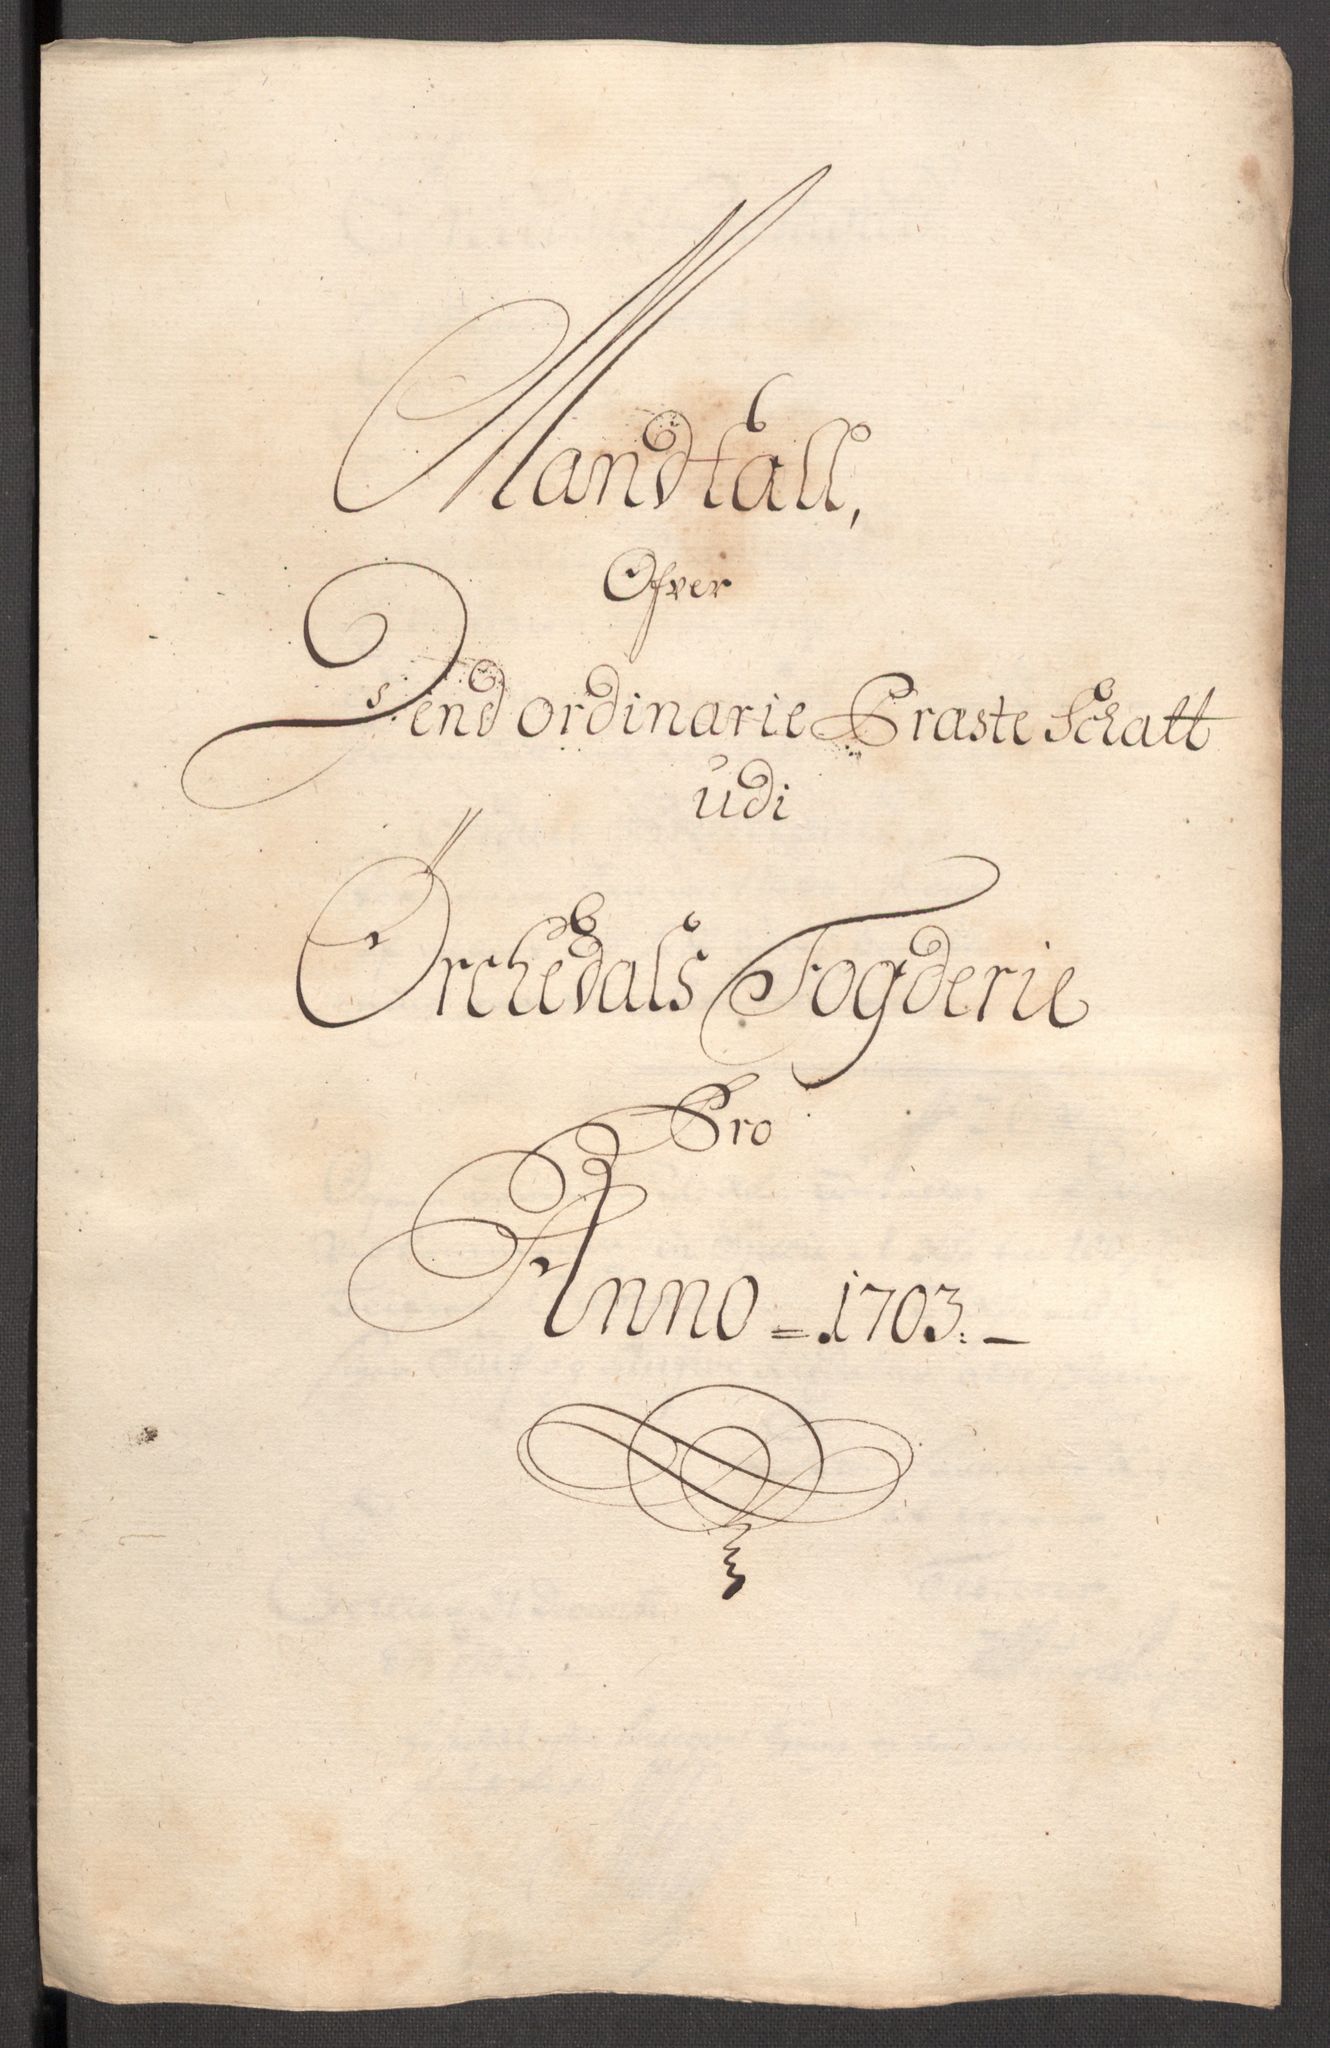 Mandtall,
Ofver
Dend ordinarie Præste Schatt
udi
Örchedals Fogderie
Pro
Anno = 1703. —